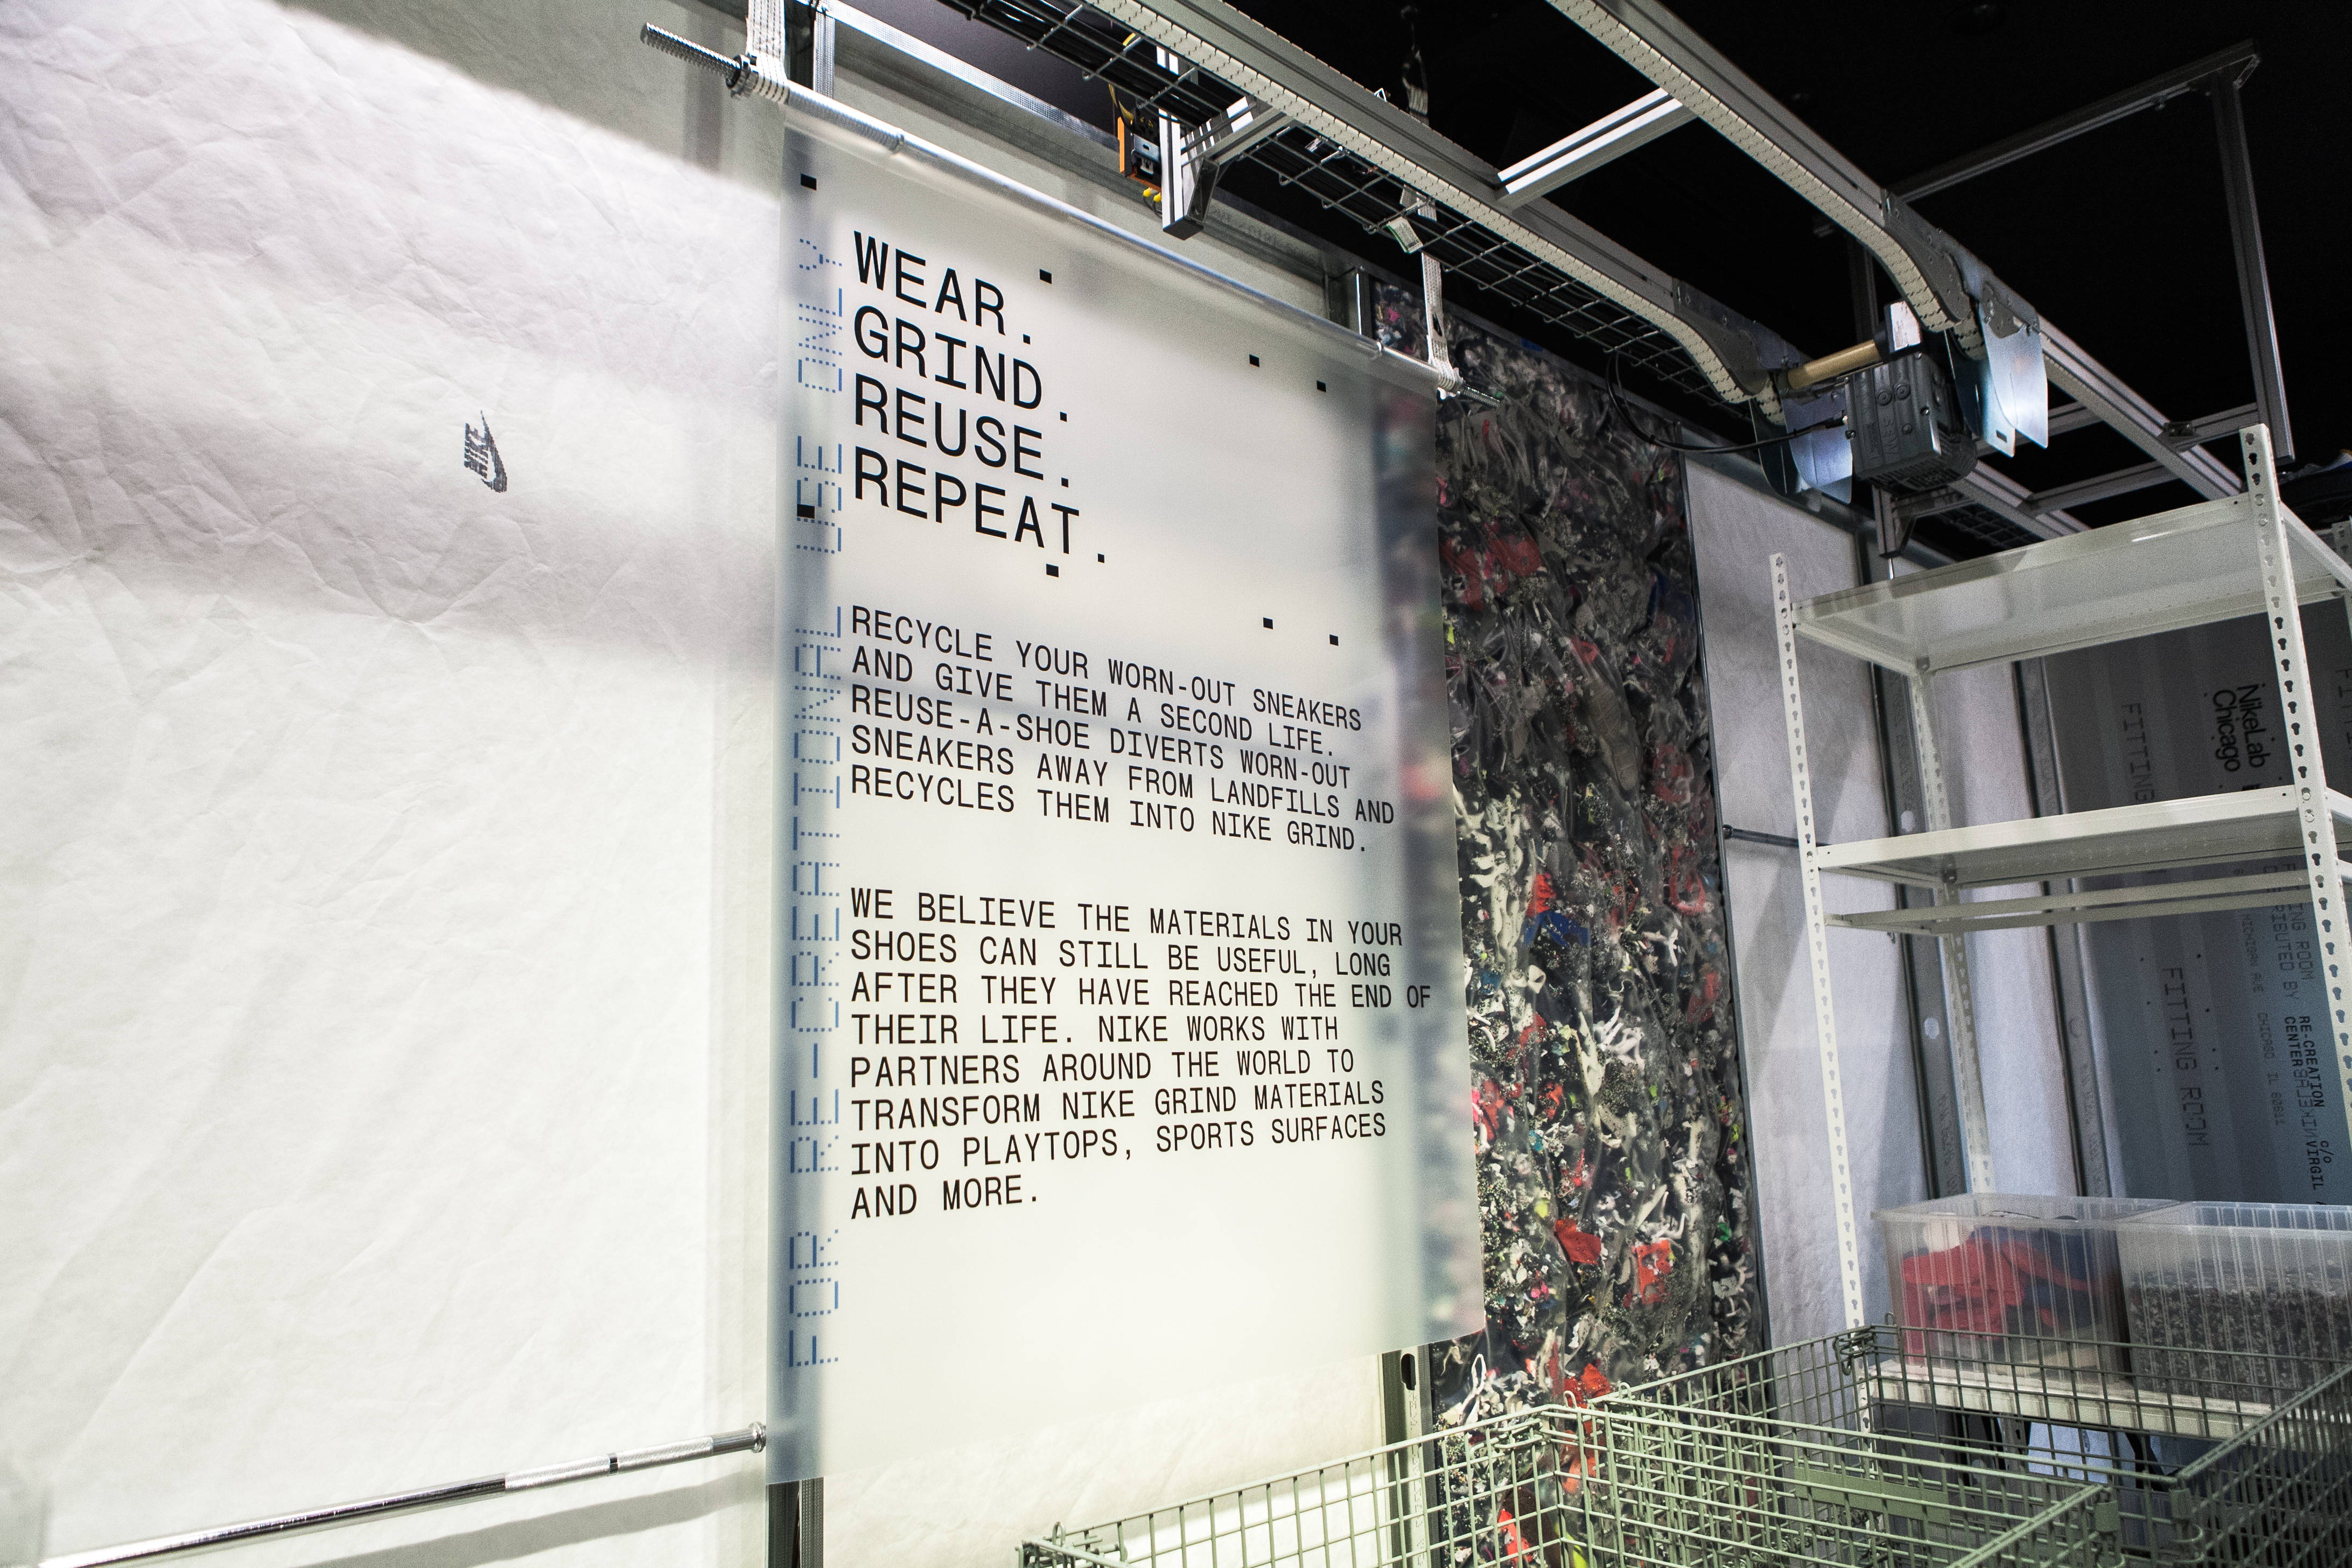 NIKE
WEAR.
GRIND.
REUSE.
REPEAT.
RECYCLE YOUR WORN-OUT SNEAKERS
AND GIVE THEM A SECOND LIFE.
REUSE-A-SHOE DIVERTS WORN-OUT
SNEAKERS AWAY FROM LANDFILLS AND
RECYCLES THEM INTO NIKE GRIND.
WE BELIEVE THE MATERIALS IN YOUR
SHOES CAN STILL BE USEFUL, LONG
AFTER THEY HAVE REACHED THE END OF
THEIR LIFE. NIKE WORKS WITH
PARTNERS AROUND THE WORLD TO
TRANSFORM NIKE GRIND MATERIALS
INTO PLAYTOPS, SPORTS SURFACES
AND MORE.
FOR RE-CREATIONAL USE ONLY
NikeLab
Chicago
FITTING
FITTING ROOM
RE-CREATION
CENTER
c/o
VIRGIL
MICHIGAN AVE
CHICAGO IL 60611